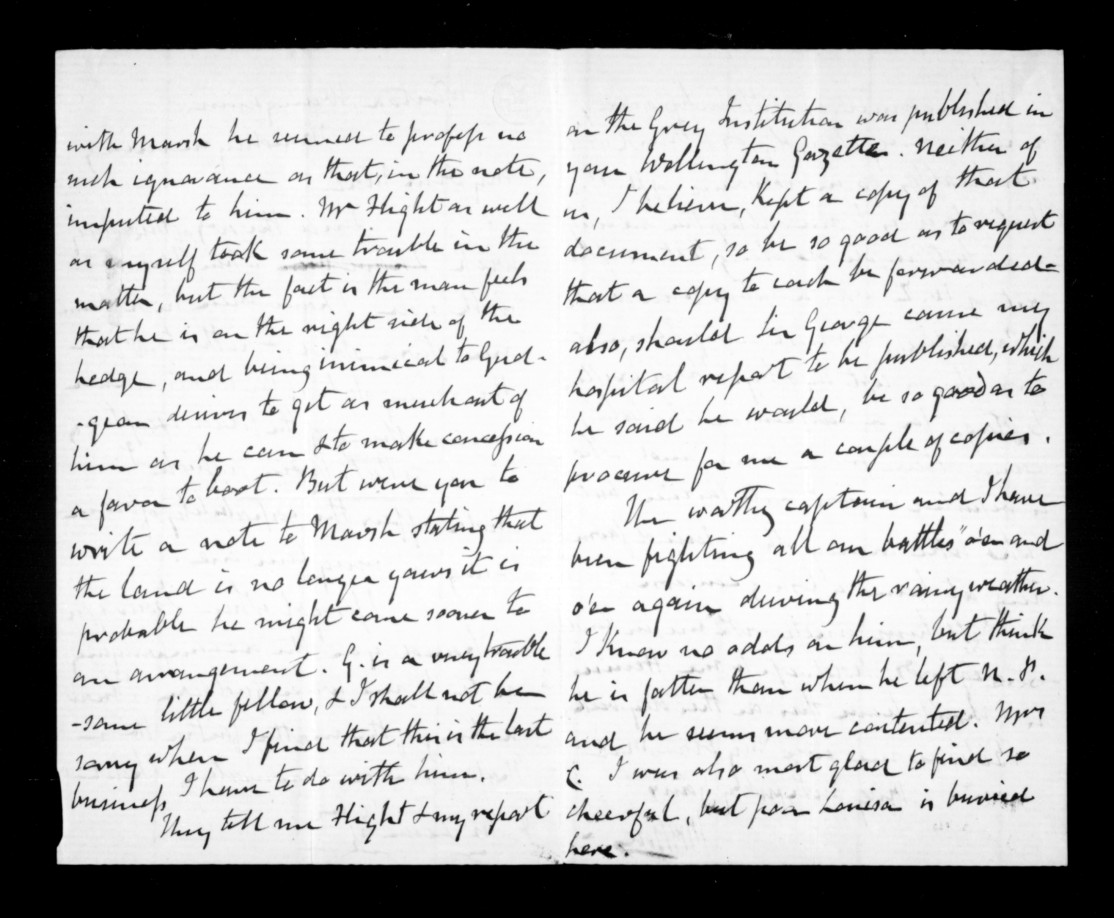 with Marsh he seemed to profess no
such ignorance as that, in the note,
imputed to him. Mr Hight as well
as myself took some trouble in the
matter, but the fact is the man feels
that he is on the right side of the
hedge, and being inimical to Gud-
-geon desires to get as much out of
him as he can & to make concession
a favor to boot. But were you to
write a note to Marsh stating that
the land is no longer yours it is
probable he might come sooner to
an arrangement. G. is a very trouble
-some little fellow, & I shall not be
sorry when I find that this is the last
business I have to do with him.
They tell me Hight & my report
on the Grey Institution was published in
your Wellington Gazette. Neither of
us, I believe, kept a copy of that
document, so be so good as to request
that a copy to each be forwarded-
also, should Sir George cause my
hospital report to be published, which
he said he would, be so good as to
procure for me a couple of copies.
The worthy captain and I have
been fighting all our battles "o'er and
o'er again during the rainy weather.
I know no odds on him, but think
he is fatter than when he left N. P.
and he seems more contented. Mrs
C. I was also most glad to find so
cheerful, but poor Louisa is buried
here.